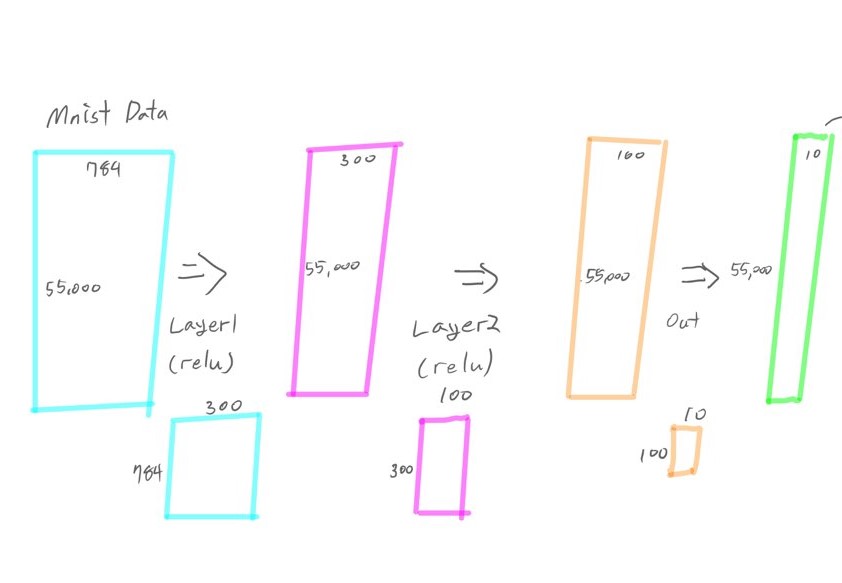 Mnist Data
784
55,000
Layer1
(relu)
300
784
300
55,000
Layer2
(relu)
100
300
100
55,000
Out
10
100
10
55,000